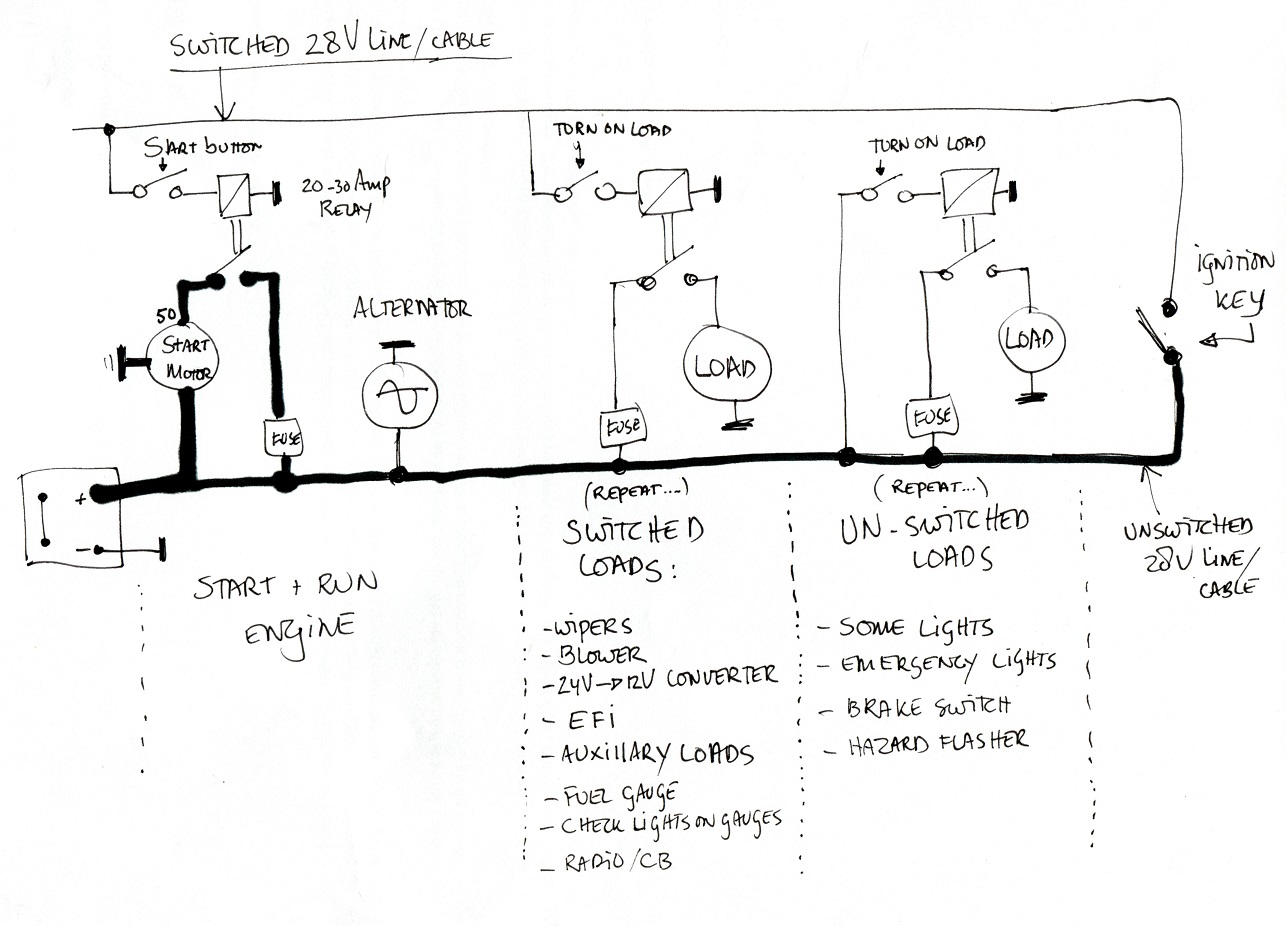 SWITCHED 28V LINE/CABLE
START BUTTON
20-30 Amp
RELAY
TURN ON LOAD
TURN ON LOAD
IGNITION
KEY
50
START
MOTOR
ALTERNATOR
LOAD
LOAD
FUSE
FUSE
FUSE
+
-
(REPEAT....)
SWITCHED
LOADS:
(REPEAT...)
UN-SWITCHED
LOADS
UNSWITCHED
28V LINE/
CABLE
START + RUN
ENGINE
-WIPERS
-BLOWER
-24V→12V CONVERTER
- EFI
-AUXILLARY LOADS
-FUEL GAUGE
-CHECK LIGHTS ON GAUGES
- RADIO/CB
- SOME LIGHTS
- EMERGENCY LIGHTS
- BRAKE SWITCH
- HAZARD FLASHER